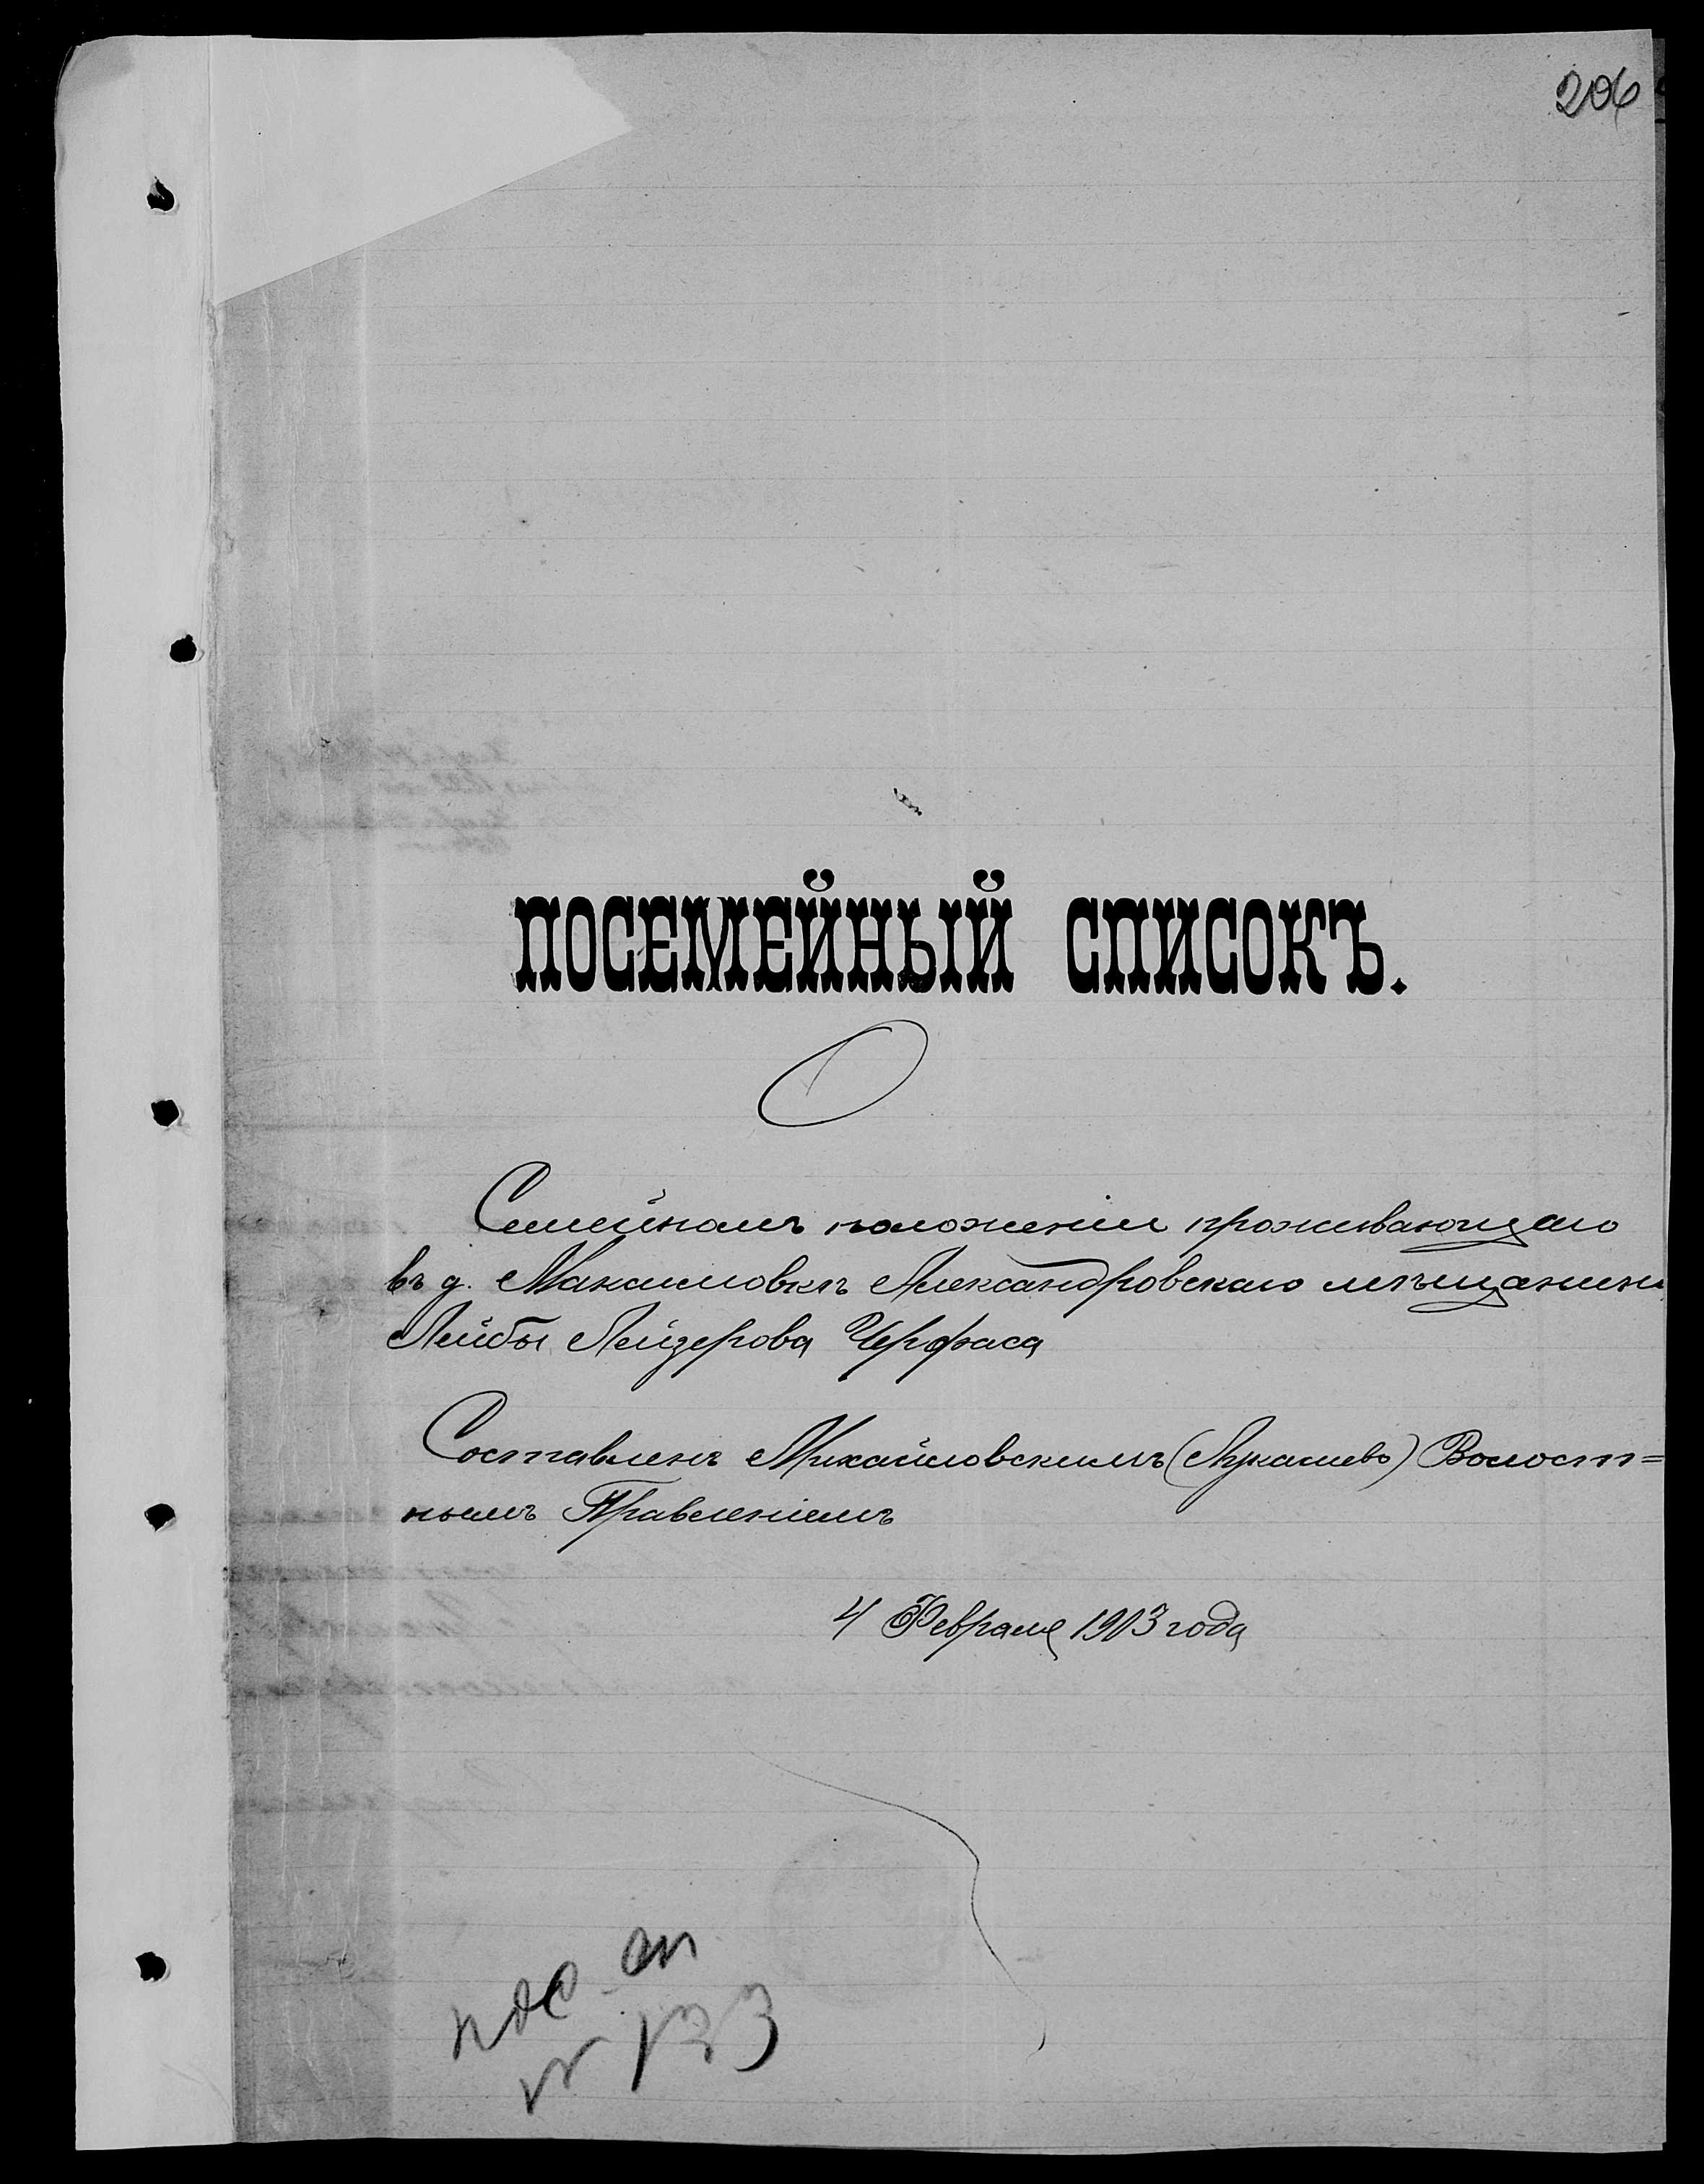 206
ПОСЕМЕЙНЫЙ СПИСОКЪ.
О
Семейномъ положеніи проживающаго
въ д. Максимовкѣ Александровскаго мѣщанина
Лейбы Лейзерова Черфаса
Составленъ Михайловскимъ (Лукашево) Волост=
нымъ Правленіемъ
4 Февраля 1903 года
133